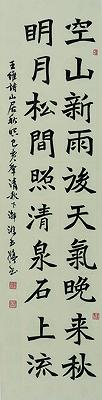 空山新雨後天氣晚来秋
明月松間照清泉石上流
王維詩山居秋暝